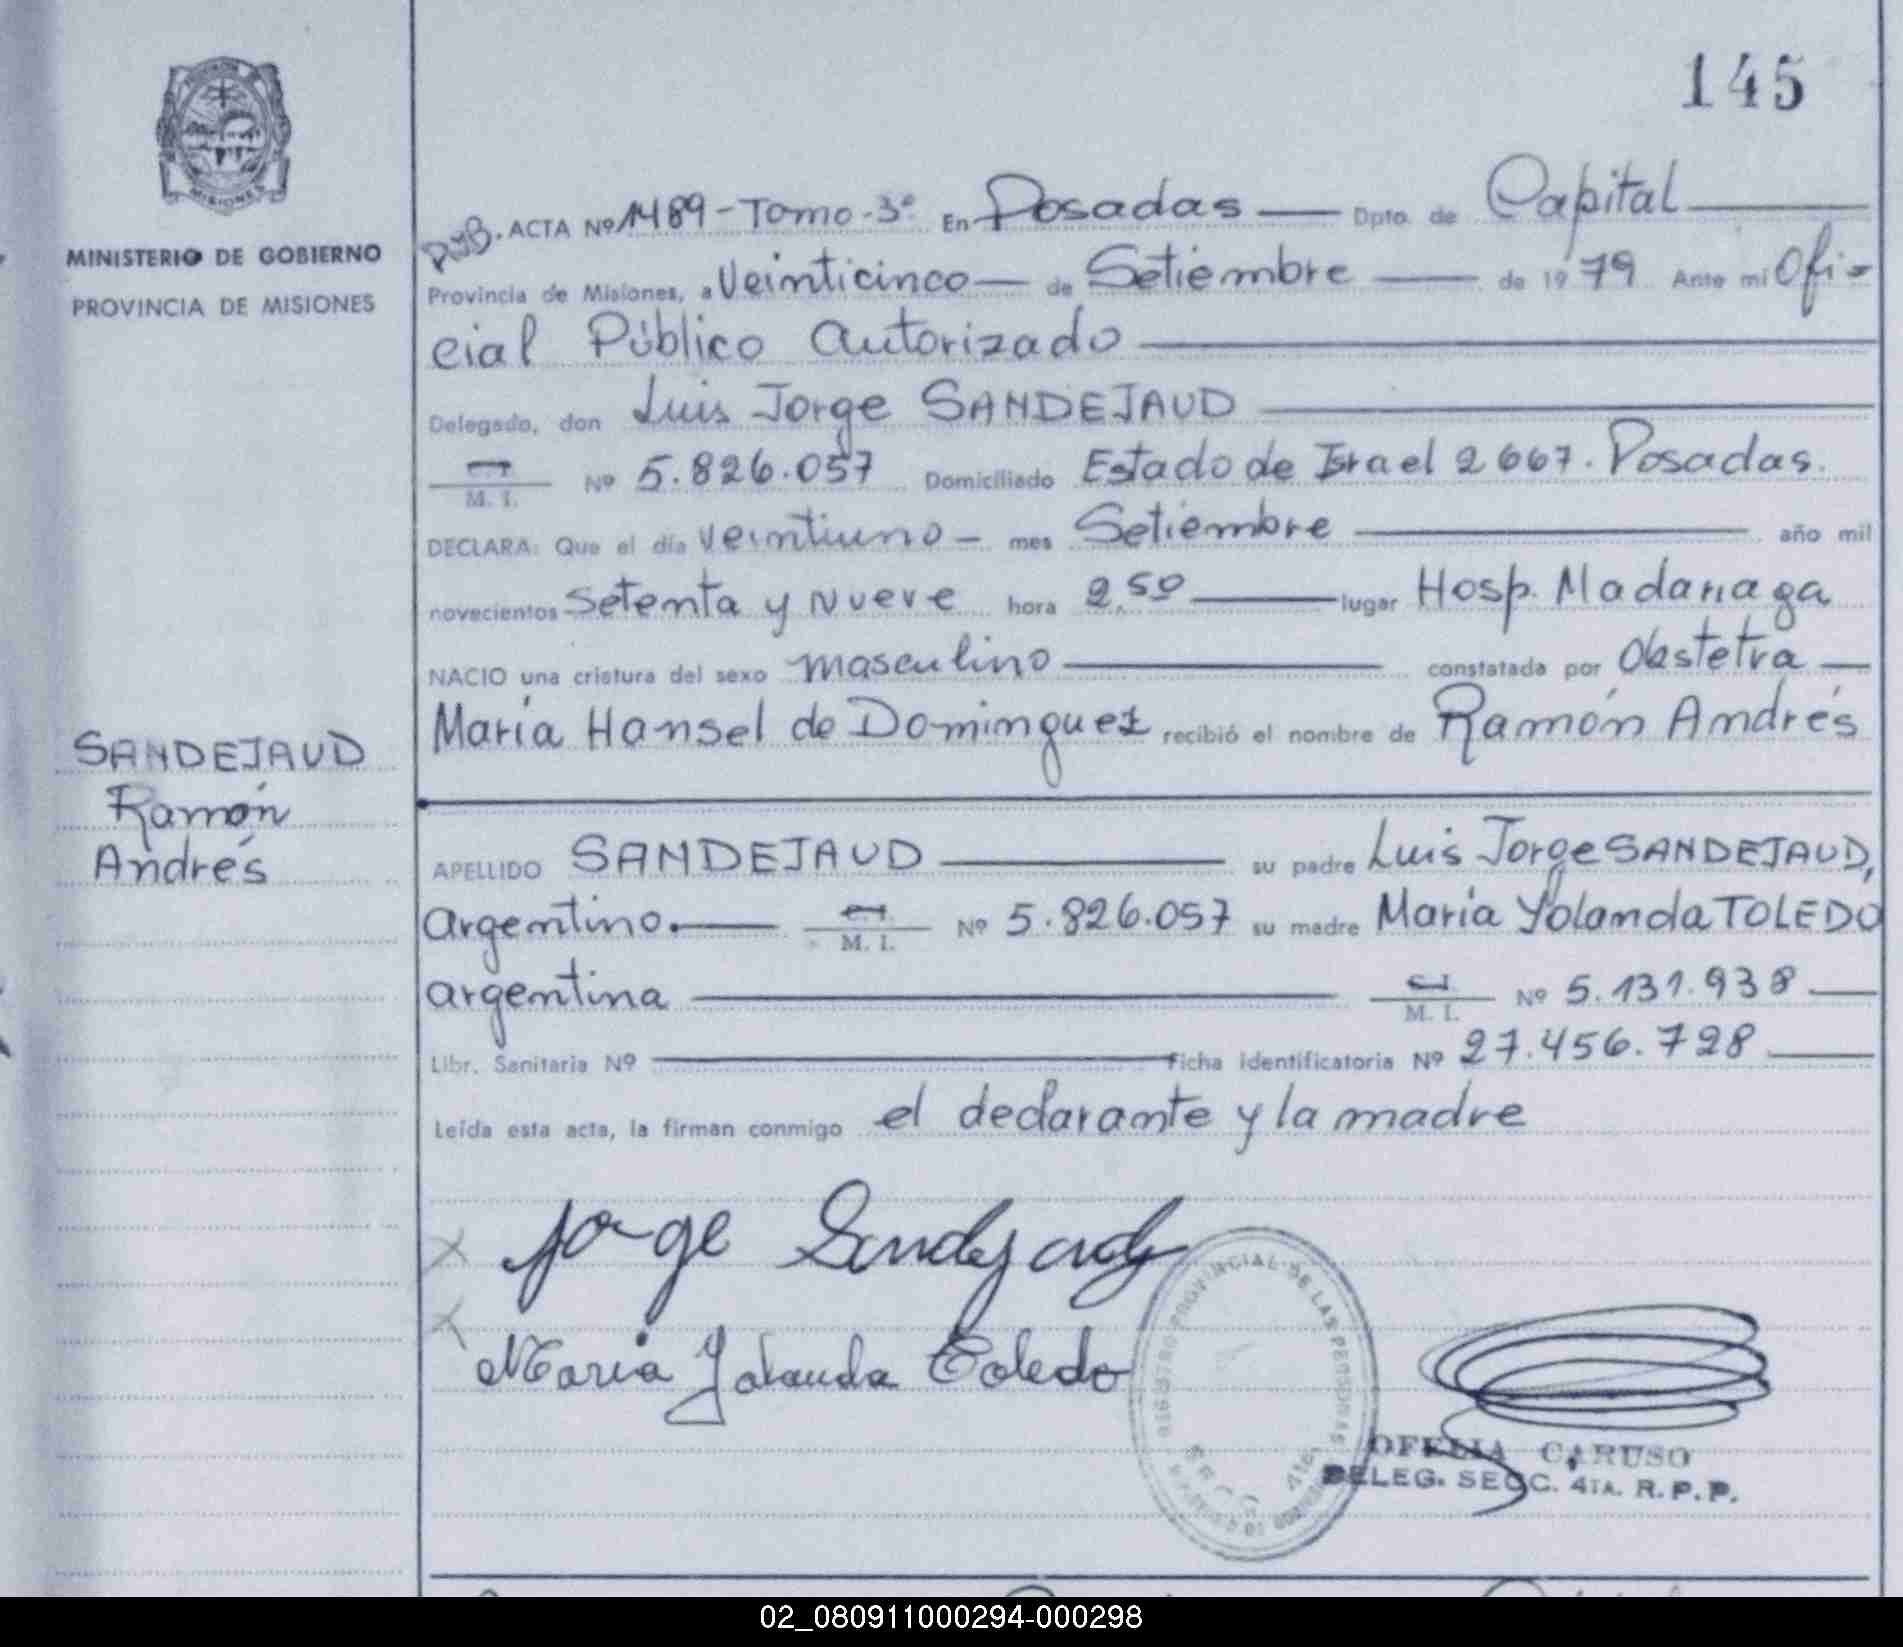 145
MINISTERIO DE GOBIERNO
PROVINCIA DE MISIONES
SANDEJAUD
Ramón
Andrés
ACTA Nº 1489 - Tomo - 3º En Posadas — Dpto. de Capital
Provincia de Misiones, a Veinticinco — de Setiembre — de 1979 Ante mi Ofi-
cial Público Autorizado
Delegado, don Luis Jorge SANDEJAUD
M. I. Nº 5.826.057 Domiciliado Estado de Israel 2667. Posadas.
DECLARA: Que el día veintiuno - mes Setiembre — año mil
novecientos Setenta y Nueve hora 2,50 — lugar Hosp. Madariaga
NACIO una criatura del sexo masculino — constatada por Obstetra —
María Hansel de Dominguez recibió el nombre de Ramón Andrés
APELLIDO SANDEJAUD — su padre Luis Jorge SANDEJAUD,
argentino. — M. I. Nº 5.826.057 su madre María Yolanda TOLEDO
argentina — M. I. Nº 5.131.938 —
Libr. Sanitaria Nº — Ficha identificatoria Nº 27.456.728 —
Leída esta acta, la firman conmigo el declarante y la madre
Jorge Sandejaud
Maria Yolanda Toledo
REGISTRO PROVINCIAL DE LAS PERSONAS
OFELIA CARUSO
DELEG. SECC. 4TA. R. P. P.
02_080911000294-000298